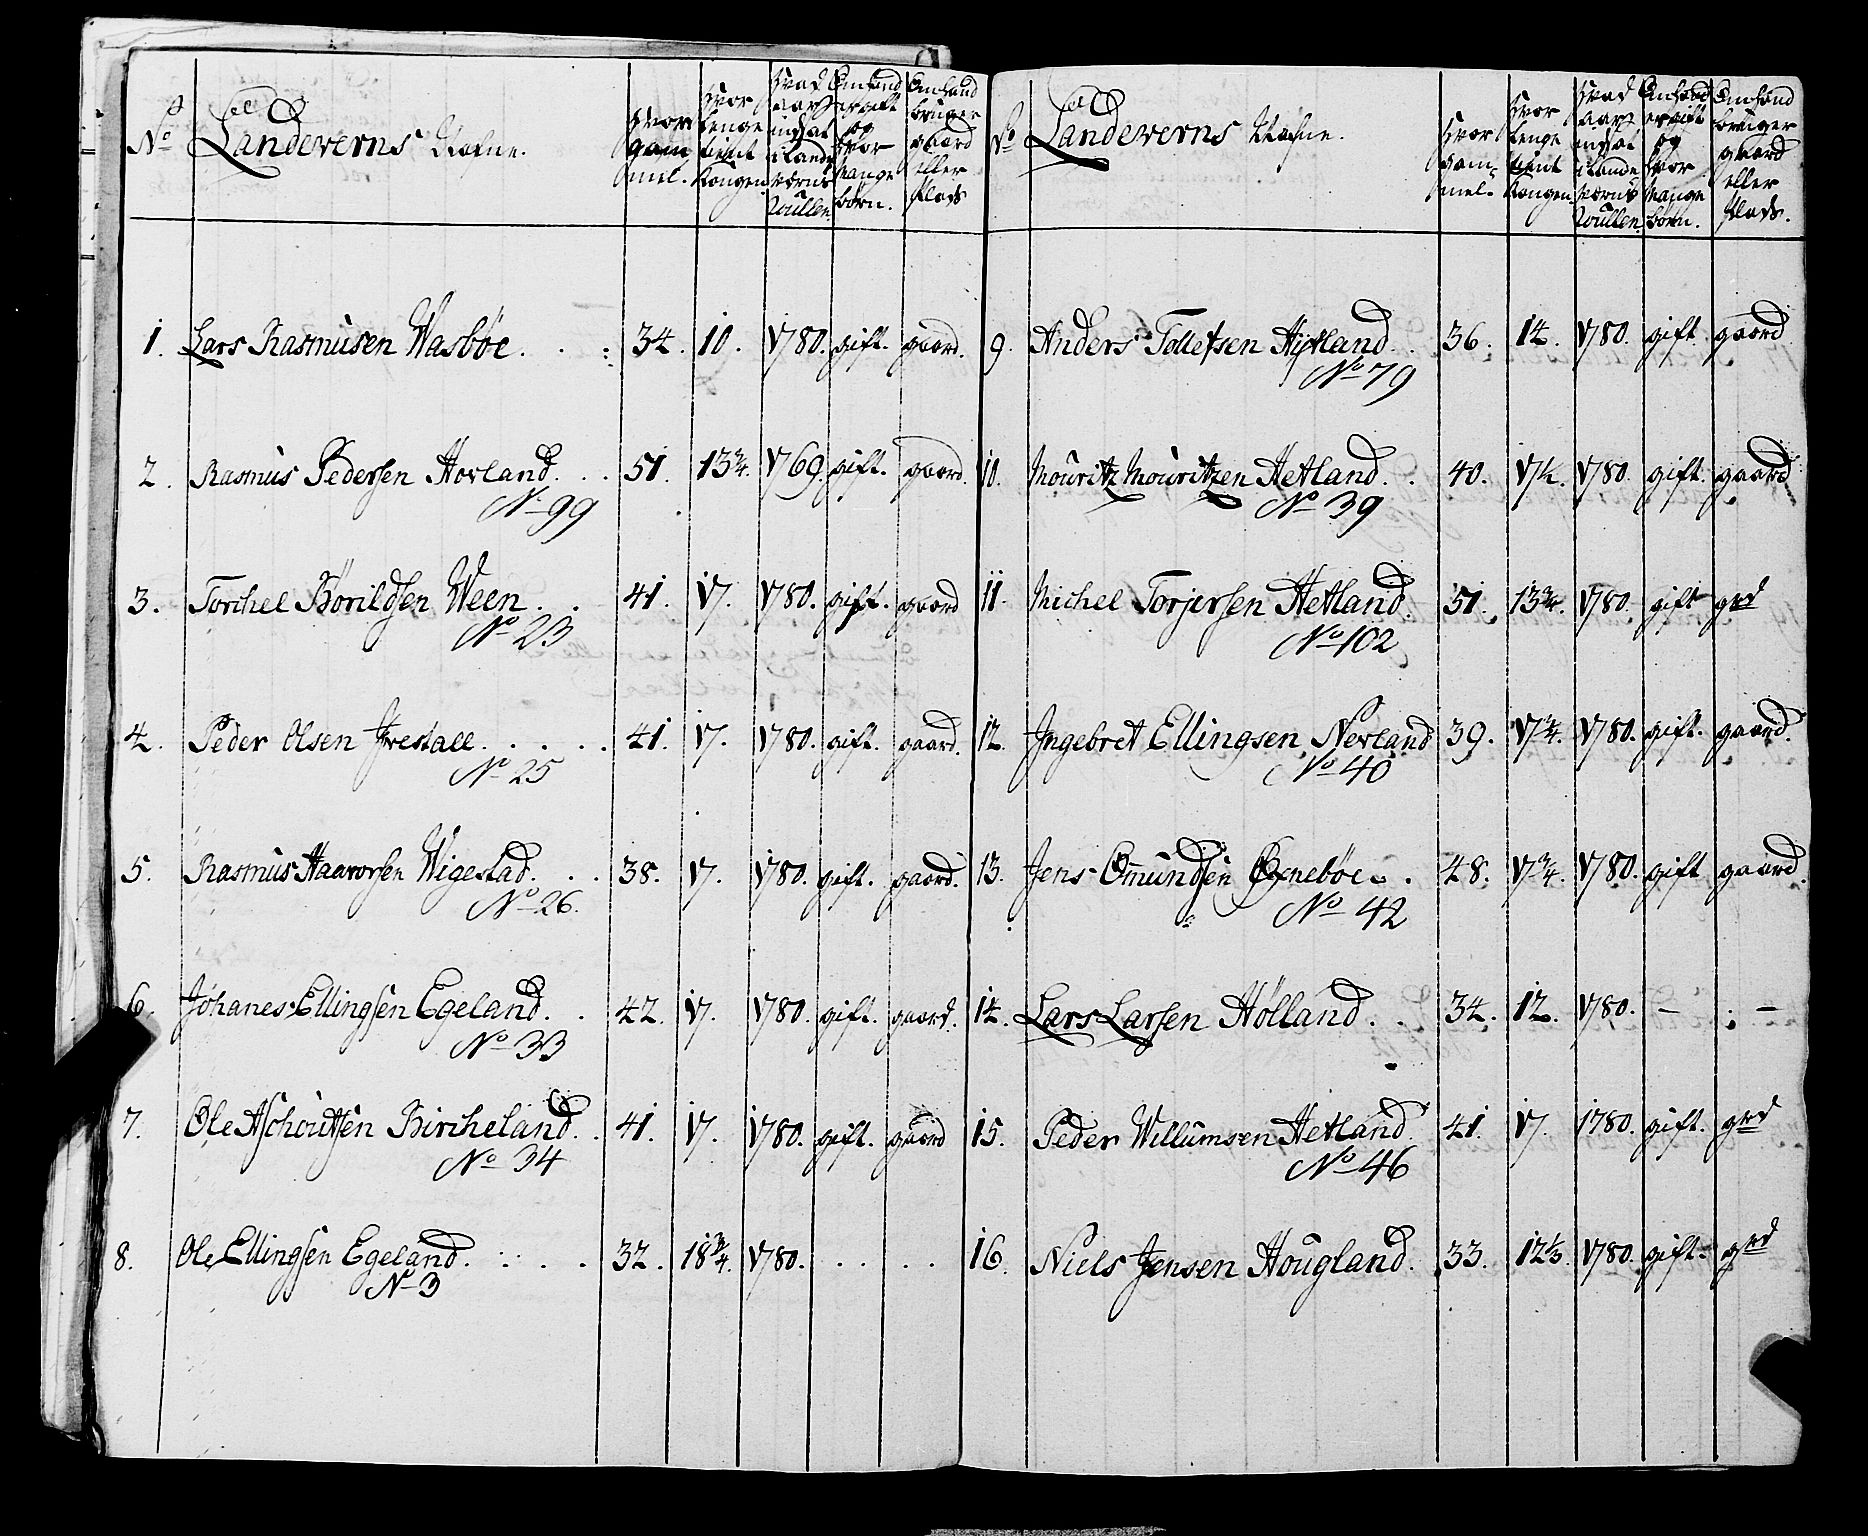 No Landeverns Nafne. Hvor gam mel. Hvor lenge tient Kongen. Hvad aar indsat i Lande Værns Roullen. Om hand er gift og hvor Mange börn. Om hand bruger gaard eller Plads
1. Lars Rasmusen Wasböe. 34. 10. 1780. gift. gaard.
2. Rasmus Pedersen Hovland. 51. 13 3/4. 1769. gift. gaard.
No 99
3. Torchel Börildsen Ween. 41. 17. 1780. gift. gaard
No 23
4. Peder Olsen Jrestaee. 41. 17. 1780. gift. gaard.
No 25
5. Rasmus Haavorsen Wigestad. 38. 17. 1780. gift. gaard.
No 26.
6. Johanes Ellingsen Egeland. 42. 17. 1780. gift. gaard.
No 33
7. Ole Aschoutsen Bircheland. 41. 17. 1780. gift. gaard
No 34
8. Ole Ellingsen Egeland. 32. 18 3/4. 1780.
No 3
No Landeverns Nafne. Hvor gam mel. Hvor lenge tient Kongen. Hvad aar indsat i Lande Værns Roullen. Om hand er gift og hvor Mange börn. Om hand bruger gaard eller Plads.
9. Anders Tolletsen 36. 14. 1780. gift gaard
No 79
10. Mouritz Mouritzen Hetland. 40. 17 1/4. 1780. gift. gaard
No 39
11. Michel Torjersen Hetland. 51. 13 3/4. 1780. gift grd
No 102
12. Jngebret Ellingsen Nevland 39. 17 3/4. 1780. gift. gaard.
No 40
13. Jens Omundsen Öxneböe. 48. 17 3/4. 1780. gift gaard.
No 42
14. Lars Larsen Hölland. 34. 12. 1780. - -
15. Peder Willumsen Hetland. 41. 17. 1780. gift. grd
No 46
16. Niels Jensen Hougland. 33. 12 1/3. 1780. gift. grd